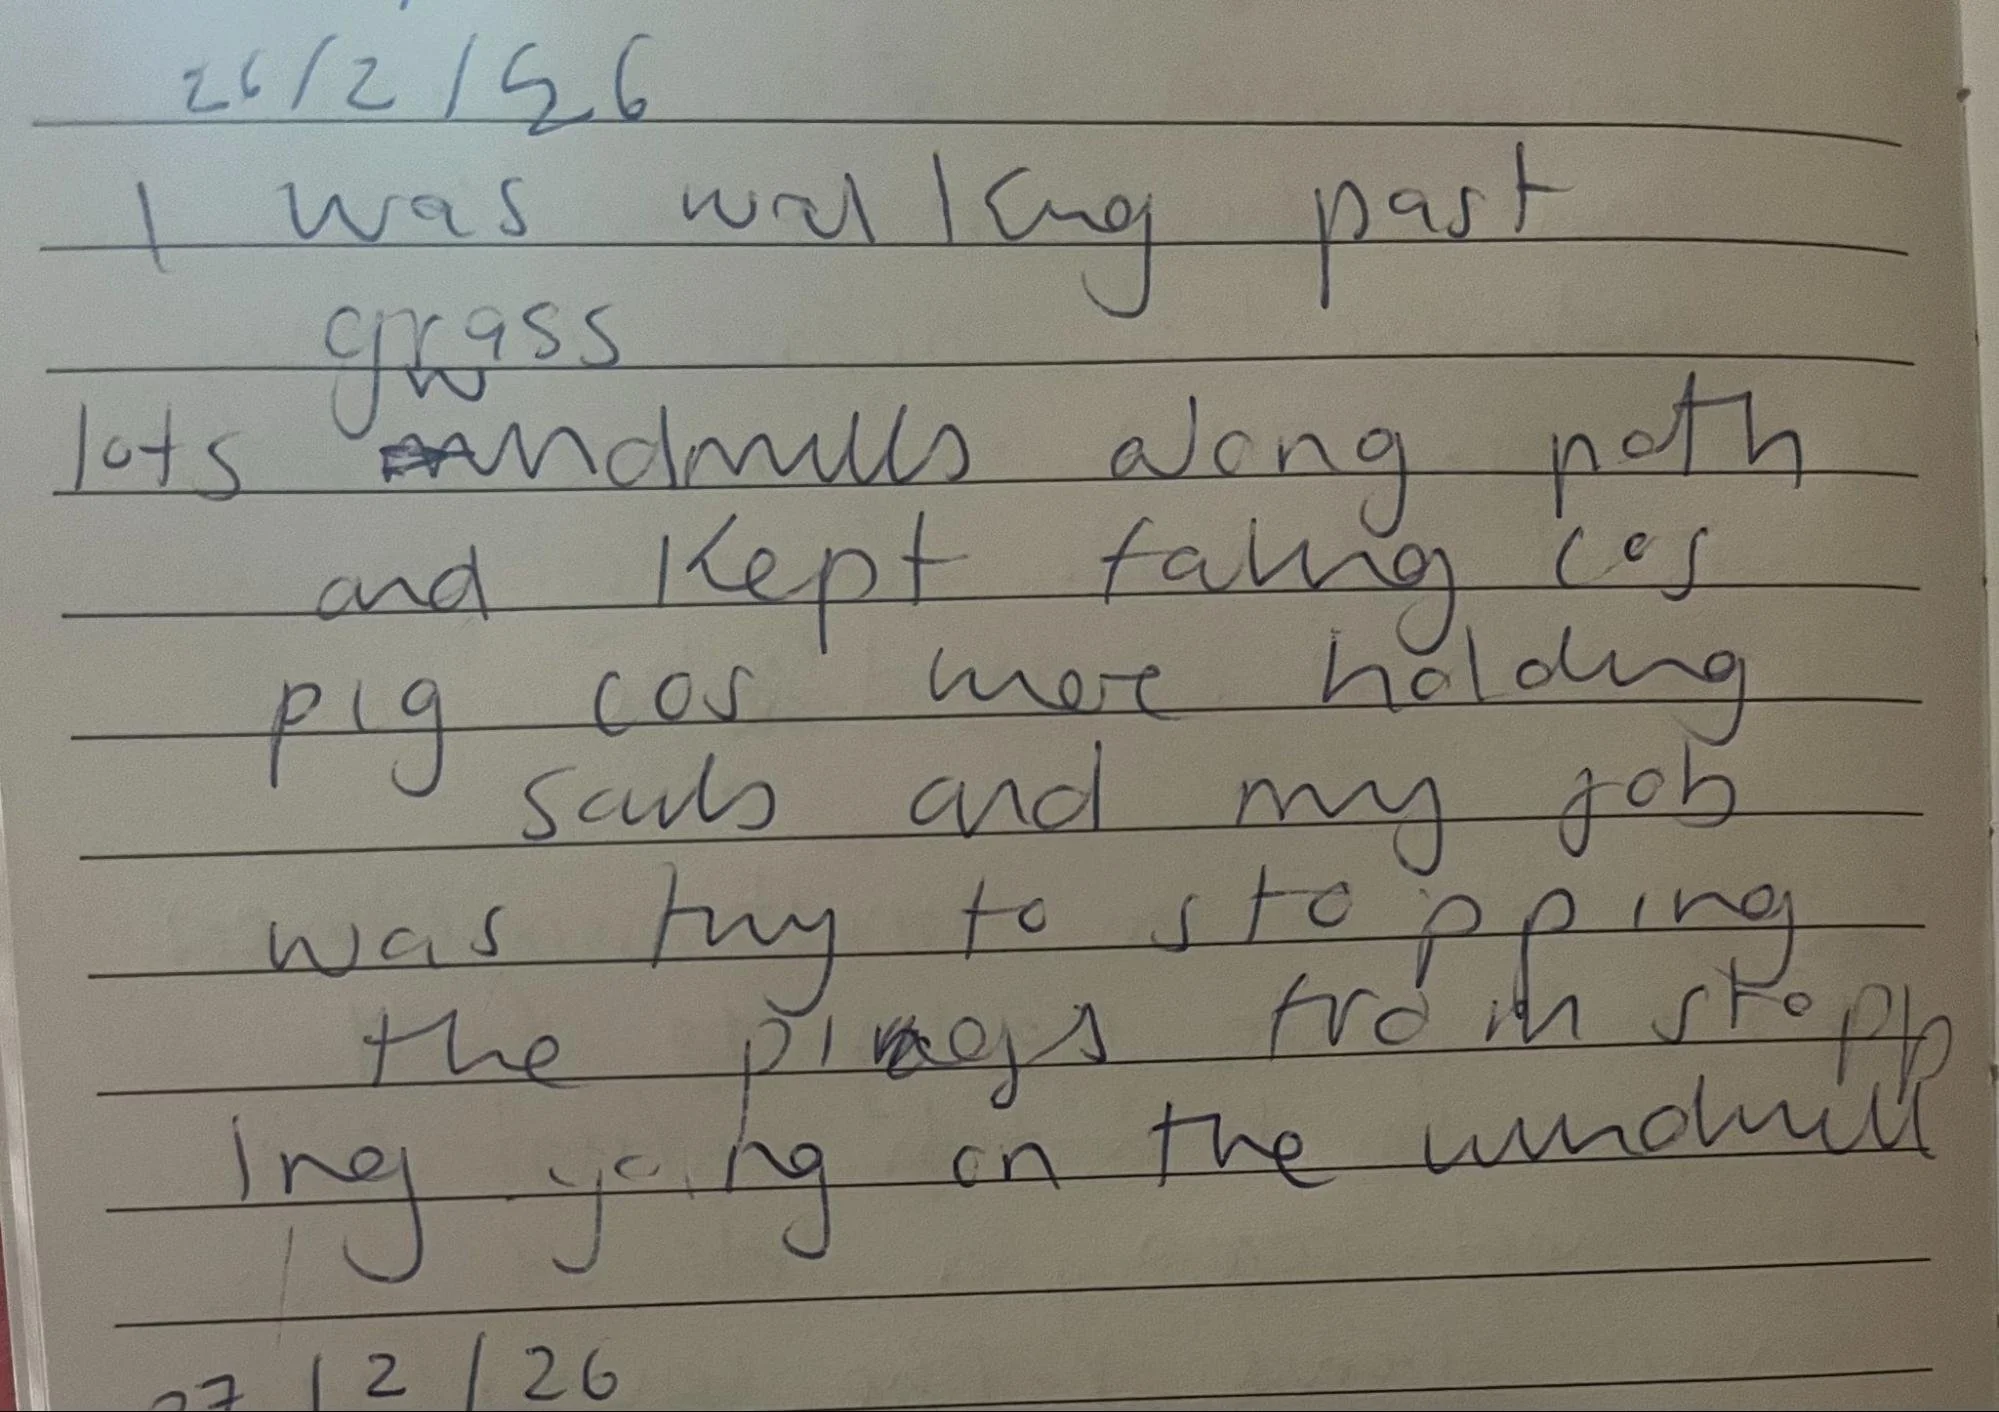 26/2/26
I was walking past
grass
lots windmills along path
and kept faling cos
pig cos were holding
sails and my job
was try to stopping
the pigs from stopp
ing going on the windmill
27/2/26